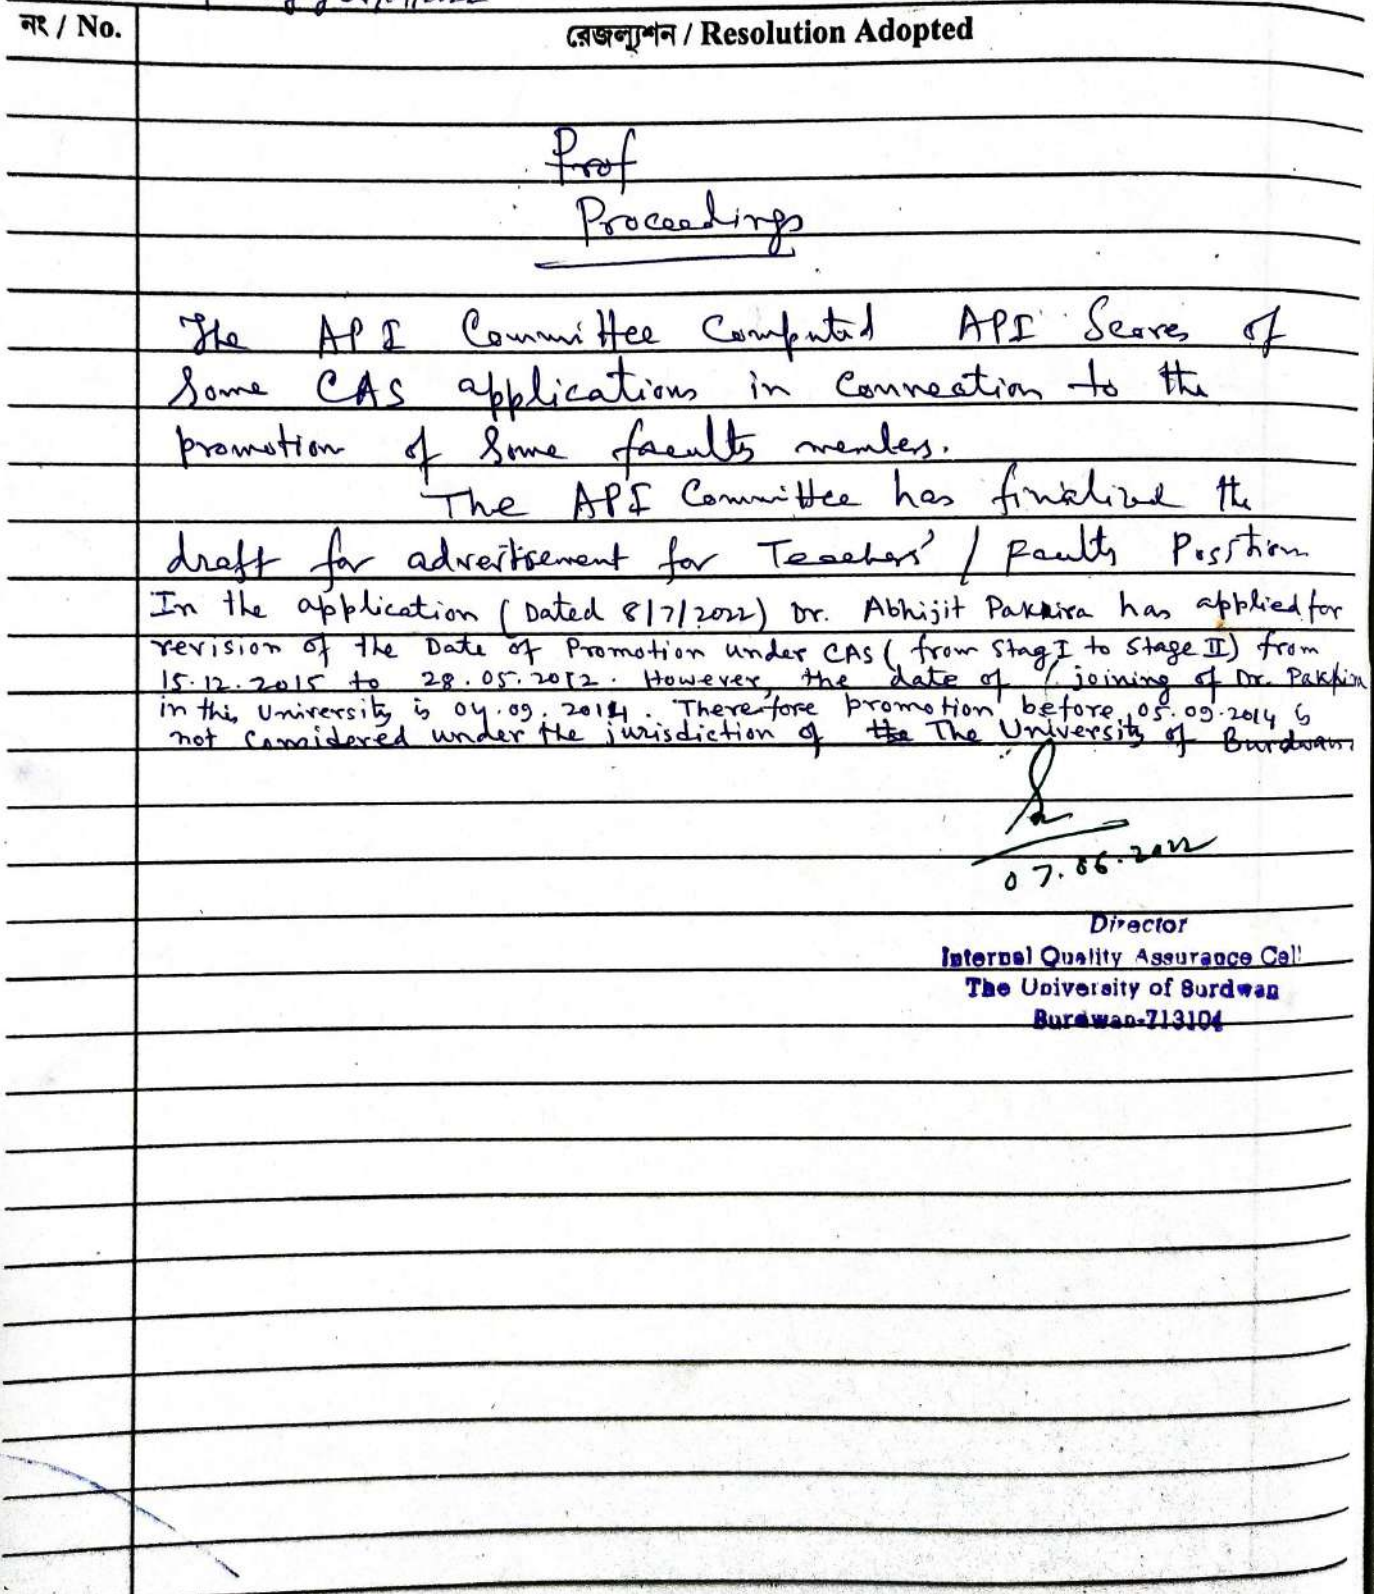 নং / No.
রেজল্যুশন / Resolution Adopted
Prof
Proceedings
The API Committee Computed API Scores of
Some CAS applications in Connection to the
promotion of Some faculty members.
The API Committee has finalized the
draft for advertisement for Teachers' / Faculty Position
In the application (Dated 8/7/2022) Dr. Abhijit Pakkira has applied for
revision of the Date of Promotion under CAS (from Stag I to Stage II) from
15.12.2015 to 28.05.2012. However, the date of joining of Dr. Pakkira
in this University is 04.09.2014. Therefore promotion before 05.09.2014 is
not considered under the jurisdiction of the The University of Burdwan.
07.06.2022
Director
Internal Quality Assurance Cell
The University of Burdwan
Burdwan-713104